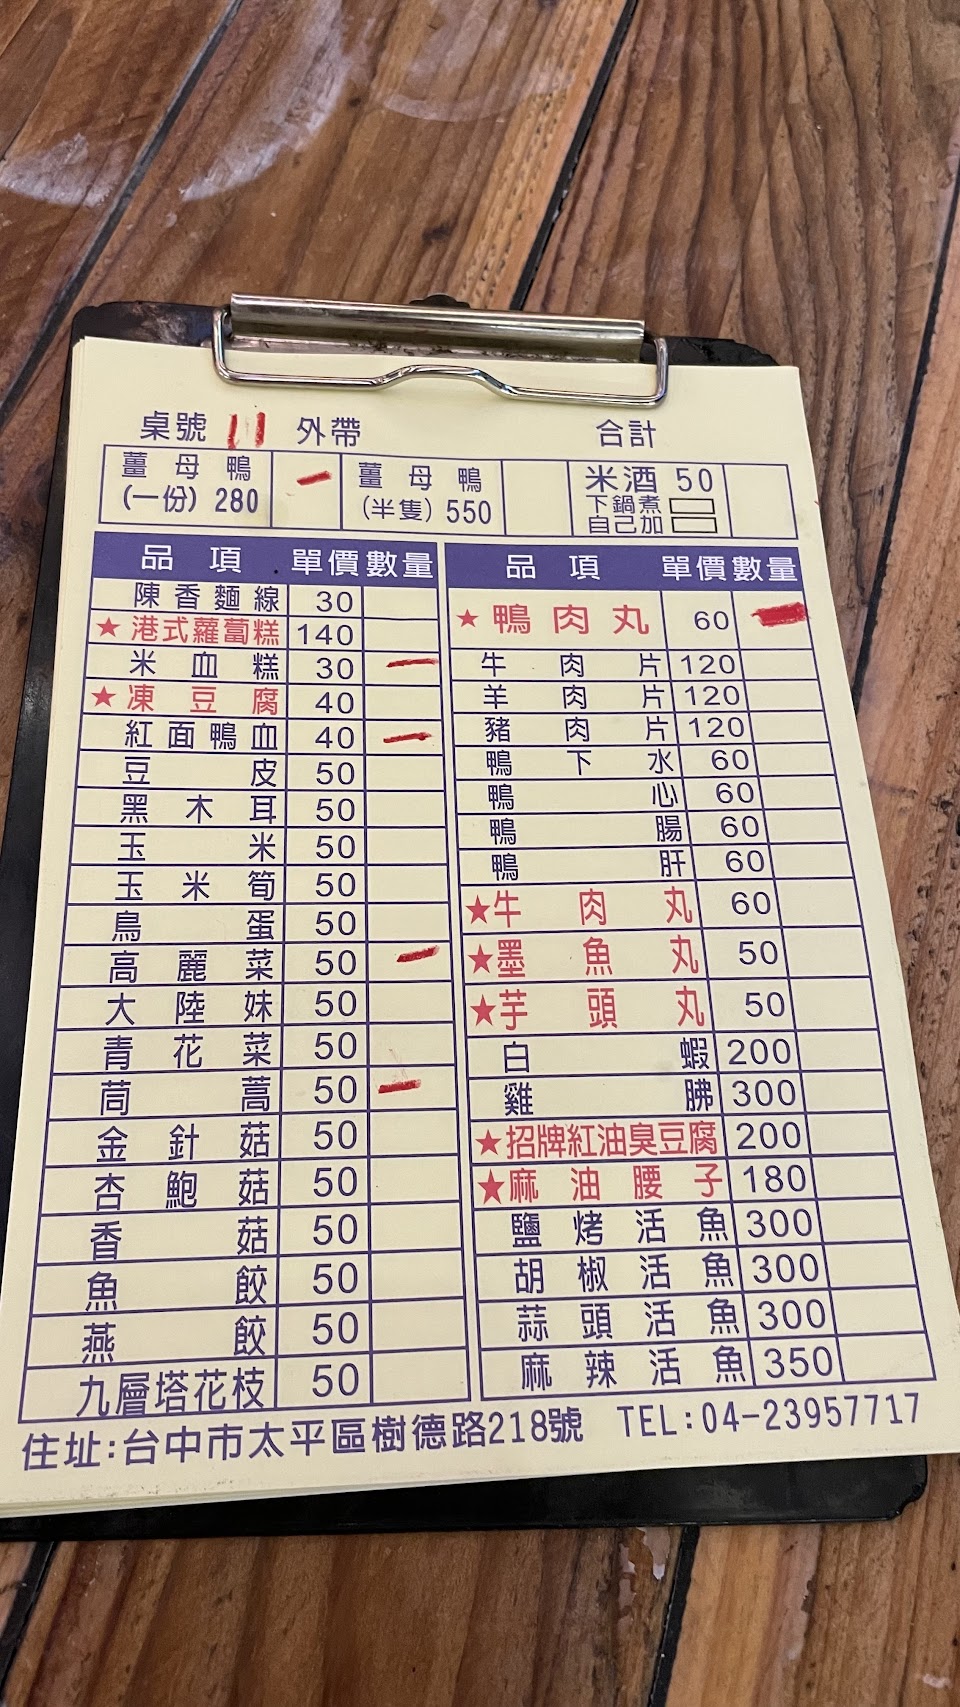 桌號 11 外帶 合計
薑母鴨 (一份) 280 一
薑母鴨 (半隻) 550
米酒 50
下鍋煮
自己加
品項 單價 數量
陳香麵線 30
★港式蘿蔔糕 140
米血糕 30 一
★凍豆腐 40
紅面鴨血 40 一
豆皮 50
黑木耳 50
玉米 50
玉米筍 50
鳥蛋 50
高麗菜 50 一
大陸妹 50
青花菜 50
茼蒿 50 一
金針菇 50
杏鮑菇 50
香菇 50
魚餃 50
燕餃 50
九層塔花枝 50
品項 單價 數量
★鴨肉丸 60 一
牛肉片 120
羊肉片 120
豬肉片 120
鴨下水 60
鴨心 60
鴨腸 60
鴨肝 60
★牛肉丸 60
★墨魚丸 50
★芋頭丸 50
白蝦 200
雞胇 300
★招牌紅油臭豆腐 200
★麻油腰子 180
鹽烤活魚 300
胡椒活魚 300
蒜頭活魚 300
麻辣活魚 350
住址:台中市太平區樹德路218號 TEL:04-23957717